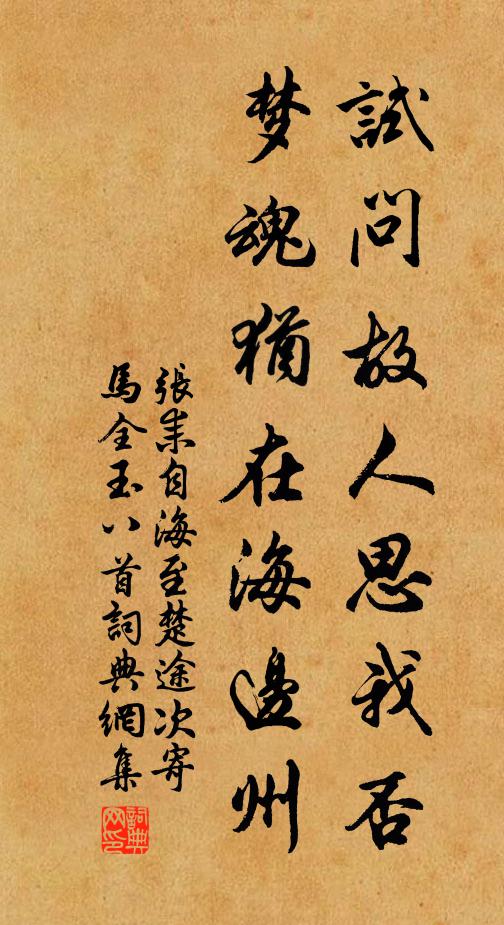 試問故人思我否
梦魂猶在海邊州
張耒自海至楚途次寄
馬全玉八首詞典網集
詞典网印